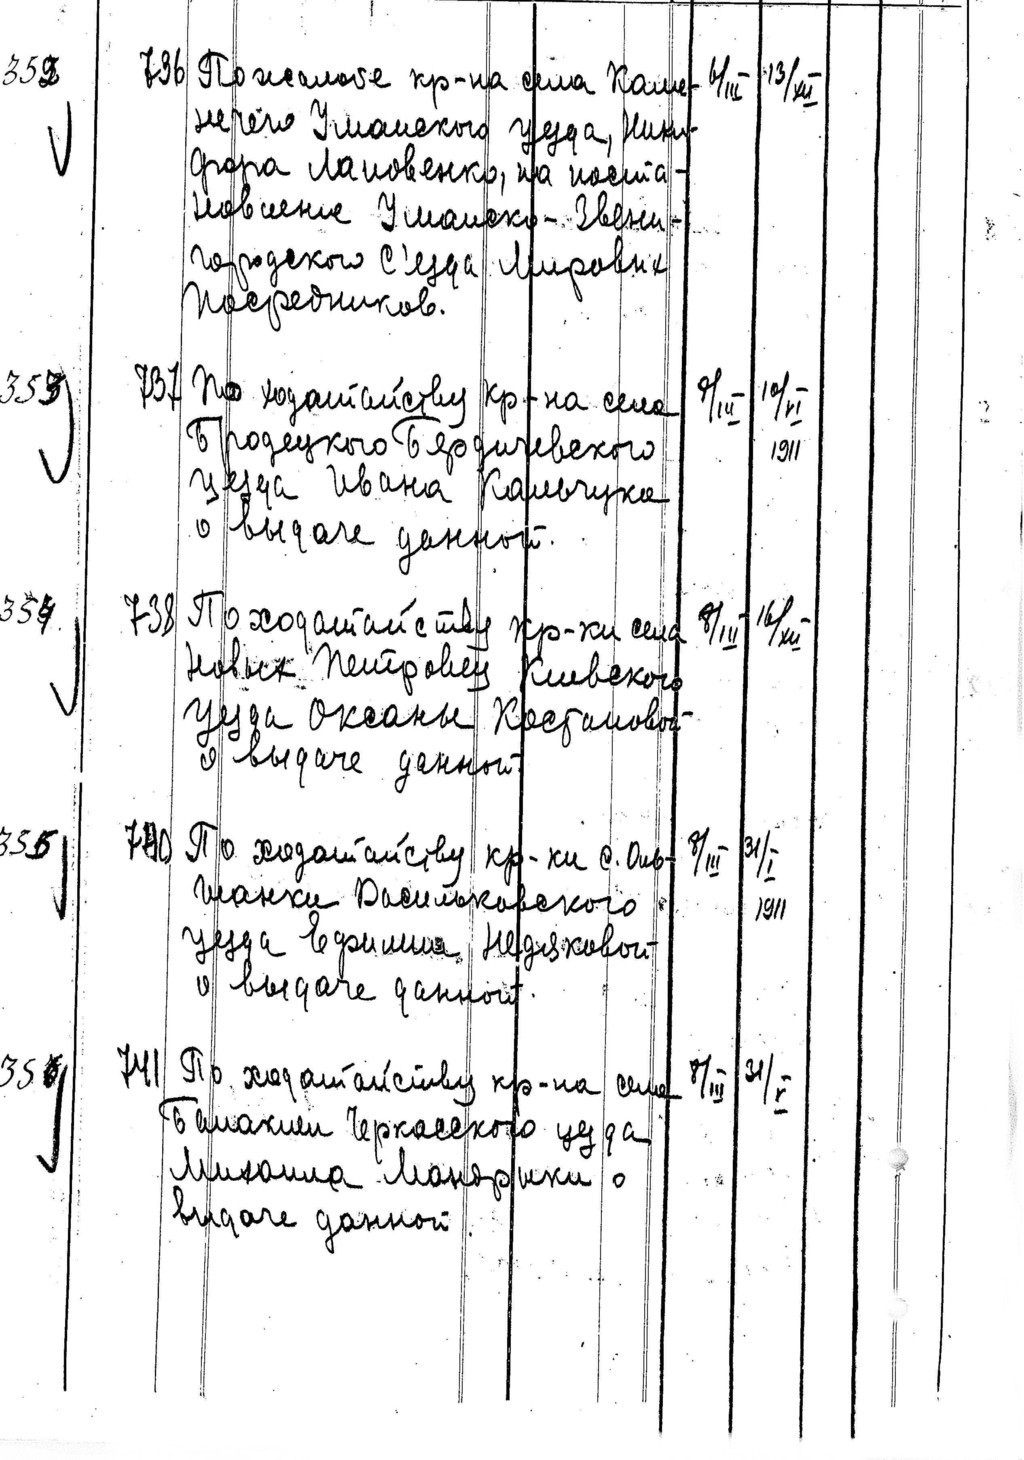 352 736 По жалобе кр-на села Каме- 6/III 13/XII
нечего Уманского уезда, Ники-
фора Лановенко, на поста-
новление Уманско-Звени-
городского С'езда Мировых
Посредников.
353 737 По ходатайству кр-на села 8/III 10/VI
Бродецкого Бердичевского 1911
уезда Ивана Кальчука
о выдаче данной.
354 738 По ходатайству кр-ки села 8/III 16/XII
Новых Петровец Киевского
уезда Оксаны Костановой
о выдаче данной.
355 740 По ходатайству кр-ки с. Оль- 8/III 31/I
шанки Васильковского 1911
уезда Ефимии Недяковой
о выдаче данной.
356 741 По ходатайству кр-на села 8/III 31/V
Балаклеи Черкасского уезда
Михаила Мандрыки о
выдаче данной.